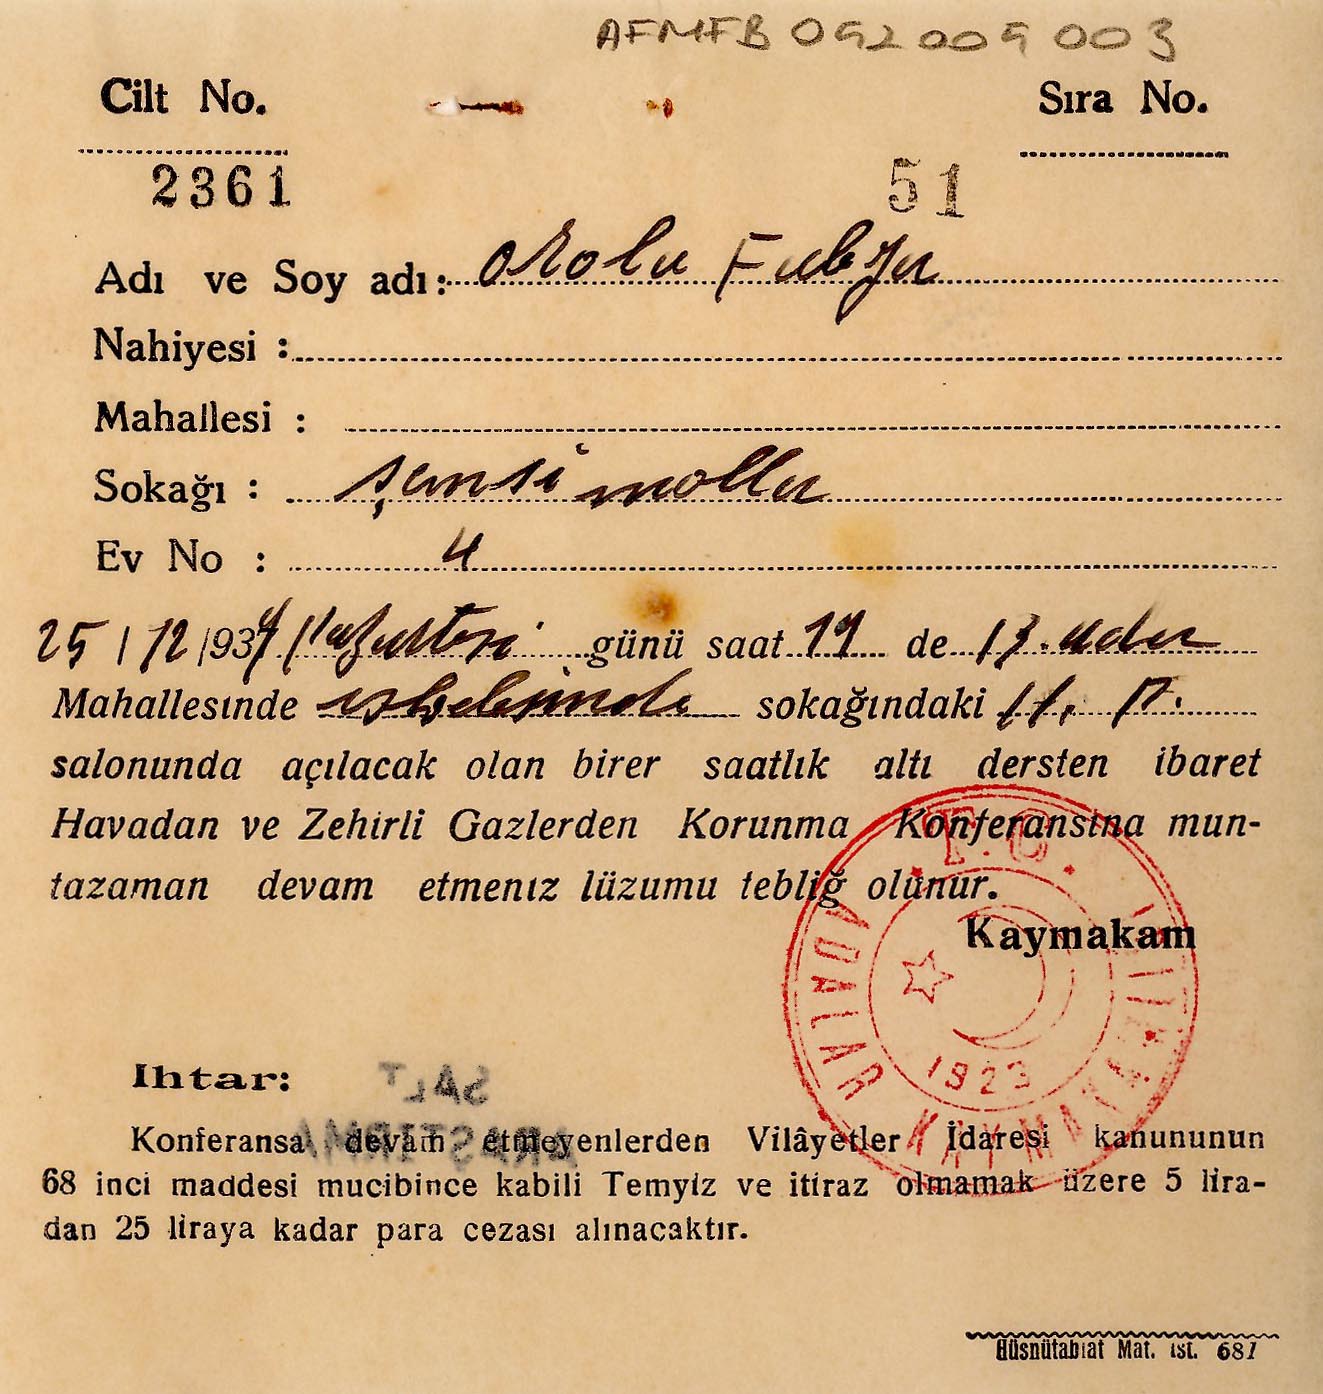 AFMFB 092009003
Cilt No. Sıra No.
2361 51
Adı ve Soy adı:
Nahiyesi :
Mahallesi :
Sokağı : şemsi molla
Ev No : 4
25 / 12 /937 günü saat de
Mahallesinde iskelesinde sokağındaki
salonunda açılacak olan birer saatlık altı dersten ibaret
Havadan ve Zehirli Gazlerden Korunma Konferansina mun-
tazaman devam etmenız lüzumu tebliğ olunur.
Kaymakam
T.C. ADALAR KAYMAKAMLIĞI 1923
Ihtar:
SALT
ARAŞTIRMA
Konferansa devam etmeyenlerden Vilâyetler İdaresi kanununun
68 inci maddesi mucibince kabili Temyiz ve itiraz olmamak üzere 5 lira-
dan 25 liraya kadar para cezası alınacaktır.
Hüsnütabiat Mat. ist. 681